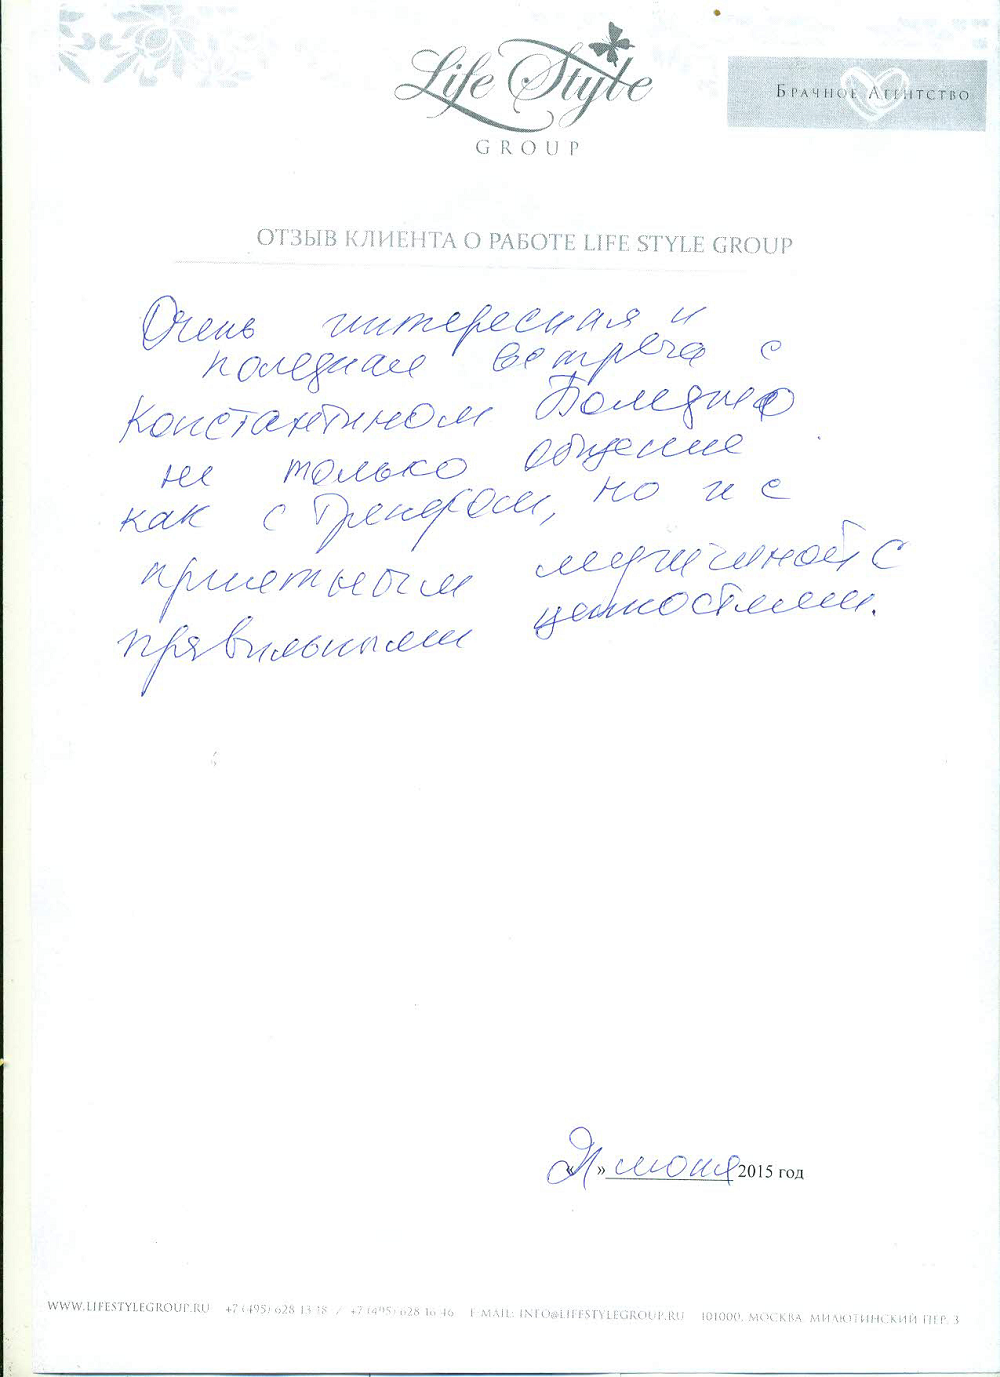 Life Style
GROUP
БРАЧНОЕ АГЕНТСТВО
ОТЗЫВ КЛИЕНТА О РАБОТЕ LIFE STYLE GROUP
Очень интересная и
полезная встреча с
Константином. Полезно
не только общение
как с тренером, но и с
приятным мужчиной с
правильными ценностями.
«21» июня 2015 год
WWW.LIFESTYLEGROUP.RU +7 (495) 628 13 18 / +7 (495) 628 16 46 E-MAIL: INFO@LIFESTYLEGROUP.RU 101000, МОСКВА МИЛЮТИНСКИЙ ПЕР. 3